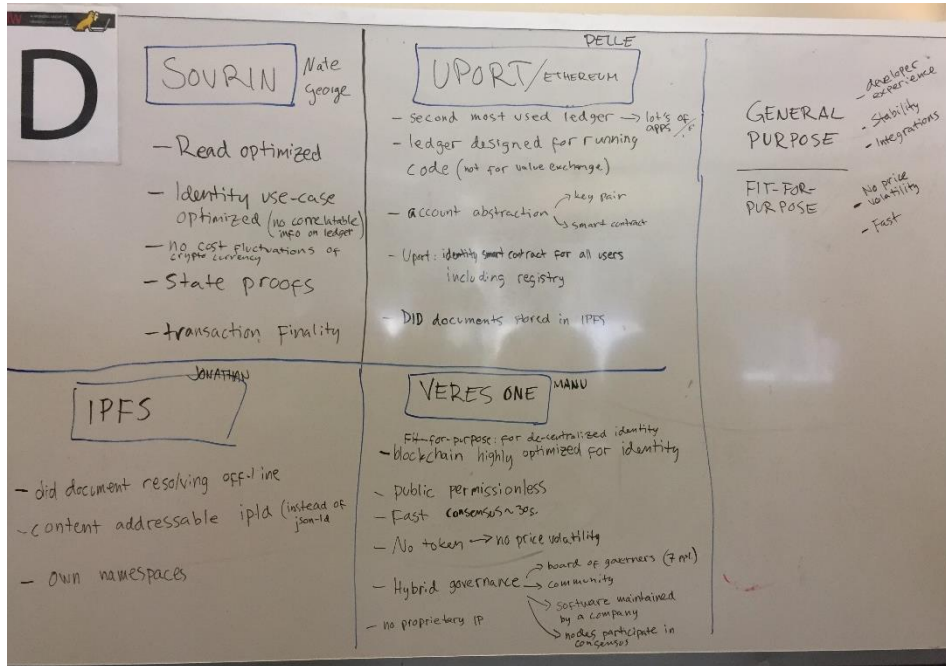 D
SOVRIN
Nate
George
- Read optimized
- Identity use-case
optimized (no correlatable
info on ledger)
- no cost fluctuations of
crypto currency
- State proofs
- transaction Finality
PELLE
UPORT/ETHEREUM
- second most used ledger → lot's of
apps
- ledger designed for running
code (not for value exchange)
- account abstraction → key pair
→ smart contract
- Uport: identity smart contract for all users
including registry
- DID documents stored in IPFS
GENERAL
PURPOSE
- developer
experience
- Stability
- Integrations
FIT-FOR-
PURPOSE
- No price
volatility
- Fast
JONATHAN
IPFS
- did document resolving off-line
- content addressable ipld (instead of
json-ld
- own namespaces
VERES ONE
MANU
Fit-for-purpose: for de-centralized identity
- blockchain highly optimized for identity
- public permissionless
- Fast consensus ~ 30s.
- No token → no price volatility
- Hybrid governance → board of governers (7
→ community
→ software maintained
by a company
→ nodes participate in
consensus
- no proprietary IP